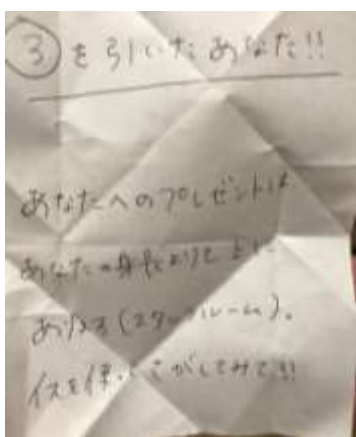 ③を引いたあなた!!
あなたへのプレゼントは
あなたの身長よりも上に
ある(スタッフルーム)。
イスを使ってさがしてみて!!